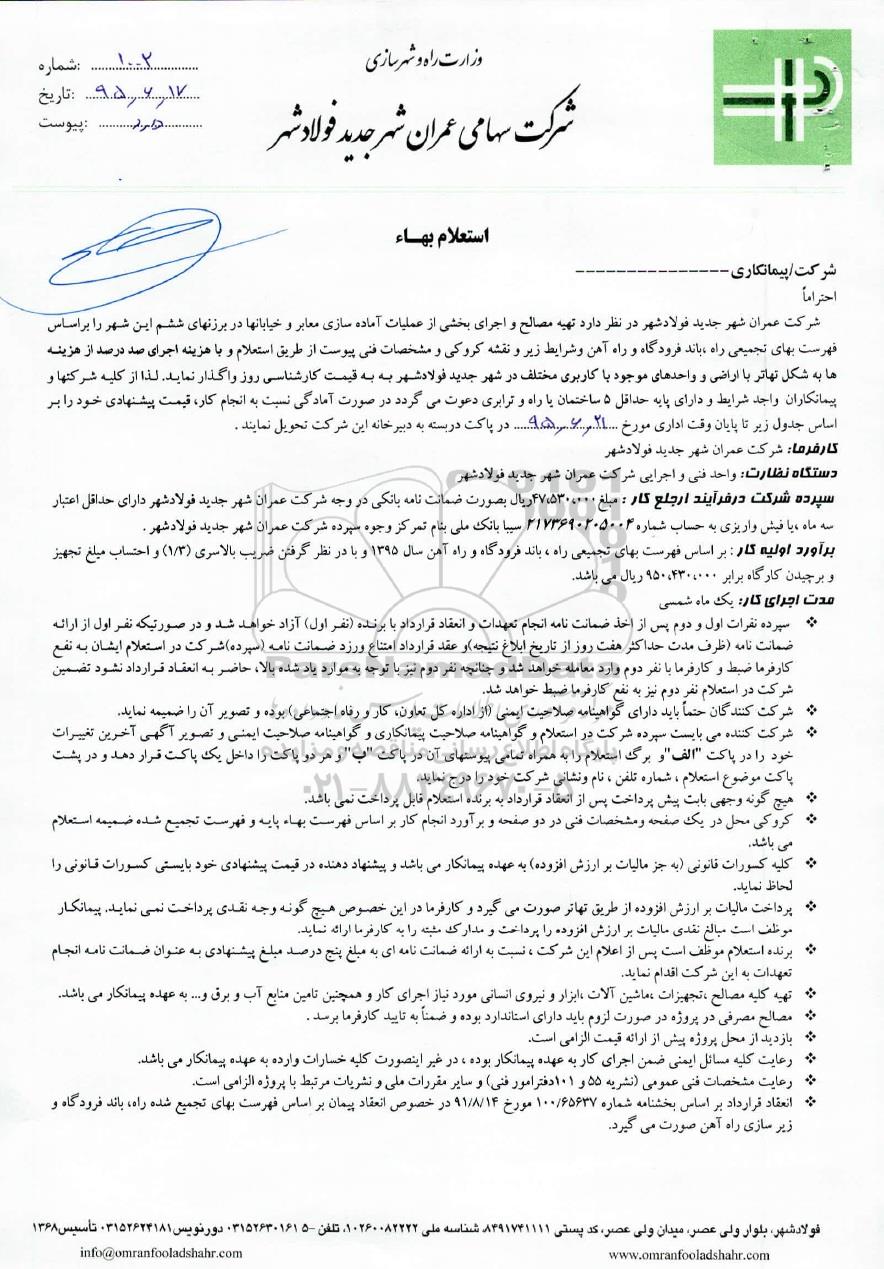 وزارت راه و شهرسازی
شرکت سهامی عمران شهر جدید فولادشهر
شماره: ۱۰۰۲
تاریخ: ۹۵٫۶٫۱۷
پیوست: دارد
استعلام بهاء
شرکت/پیمانکاری---------------
احتراماً
شرکت عمران شهر جدید فولادشهر در نظر دارد تهیه مصالح و اجرای بخشی از عملیات آماده سازی معابر و خیابانها در برزنهای ششم این شهر را براساس
فهرست بهای تجمیعی راه ،باند فرودگاه و راه آهن وشرایط زیر و نقشه کروکی و مشخصات فنی پیوست از طریق استعلام و با هزینه اجرای صد درصد از هزینه
ها به شکل تهاتر با اراضی و واحدهای موجود با کاربری مختلف در شهر جدید فولادشهر به به قیمت کارشناسی روز واگذار نماید. لذا از کلیه شرکتها و
پیمانکاران واجد شرایط و دارای پایه حداقل ۵ ساختمان یا راه و ترابری دعوت می گردد در صورت آمادگی نسبت به انجام کار، قیمت پیشنهادی خود را بر
اساس جدول زیر تا پایان وقت اداری مورخ ...۹۵٫۶٫۲۱... در پاکت دربسته به دبیرخانه این شرکت تحویل نمایند .
کارفرما: شرکت عمران شهر جدید فولادشهر
دستگاه نظارت: واحد فنی و اجرایی شرکت عمران شهر جدید فولادشهر
سپرده شرکت درفرآیند ارجاع کار : مبلغ ۴۷،۵۳۰،۰۰۰ریال بصورت ضمانت نامه بانکی در وجه شرکت عمران شهر جدید فولادشهر دارای حداقل اعتبار
سه ماه ،یا فیش واریزی به حساب شماره ۲۱۷۳۶۹۰۲۰۵۰۰۴ سیبا بانک ملی بنام تمرکز وجوه سپرده شرکت عمران شهر جدید فولادشهر .
برآورد اولیه کار : بر اساس فهرست بهای تجمیعی راه ، باند فرودگاه و راه آهن سال ۱۳۹۵ و با در نظر گرفتن ضریب بالاسری (۱/۳) و احتساب مبلغ تجهیز
و برچیدن کارگاه برابر ۹۵۰،۴۳۰،۰۰۰ ریال می باشد.
مدت اجرای کار: یک ماه شمسی
❖ سپرده نفرات اول و دوم پس از اخذ ضمانت نامه انجام تعهدات و انعقاد قرارداد با برنده (نفر اول) آزاد خواهد شد و در صورتیکه نفر اول از ارائه
ضمانت نامه (ظرف مدت حداکثر هفت روز از تاریخ ابلاغ نتیجه)و عقد قرارداد امتناع ورزد ضمانت نامه (سپرده)شرکت در استعلام ایشان به نفع
کارفرما ضبط و کارفرما با نفر دوم وارد معامله خواهد شد و چنانچه نفر دوم نیز با توجه به موارد یاد شده بالا، حاضر به انعقاد قرارداد نشود تضمین
شرکت در استعلام نفر دوم نیز به نفع کارفرما ضبط خواهد شد.
❖ شرکت کنندگان حتماً باید دارای گواهینامه صلاحیت ایمنی (از اداره کل تعاون، کار و رفاه اجتماعی) بوده و تصویر آن را ضمیمه نماید.
❖ شرکت کننده می بایست سپرده شرکت در استعلام و گواهینامه صلاحیت پیمانکاری و گواهینامه صلاحیت ایمنی و تصویر آگهی آخرین تغییرات
خود را در پاکت "الف"و برگ استعلام را به همراه تمامی پیوستهای آن در پاکت "ب"و هر دو پاکت را داخل یک پاکت قرار دهد و در پشت
پاکت موضوع استعلام ، شماره تلفن ، نام ونشانی شرکت خود را درج نماید.
❖ هیچ گونه وجهی بابت پیش پرداخت پس از انعقاد قرارداد به برنده استعلام قابل پرداخت نمی باشد.
❖ کروکی محل در یک صفحه ومشخصات فنی در دو صفحه و برآورد انجام کار بر اساس فهرست بهاء پایه و فهرست تجمیع شده ضمیمه استعلام
می باشد.
❖ کلیه کسورات قانونی (به جز مالیات بر ارزش افزوده) به عهده پیمانکار می باشد و پیشنهاد دهنده در قیمت پیشنهادی خود بایستی کسورات قانونی را
لحاظ نماید.
❖ پرداخت مالیات بر ارزش افزوده از طریق تهاتر صورت می گیرد و کارفرما در این خصوص هیچ گونه وجه نقدی پرداخت نمی نماید. پیمانکار
موظف است مبالغ نقدی مالیات بر ارزش افزوده را پرداخت و مدارک مثبته را به کارفرما ارائه نماید.
❖ برنده استعلام موظف است پس از اعلام این شرکت ، نسبت به ارائه ضمانت نامه ای به مبلغ پنج درصد مبلغ پیشنهادی به عنوان ضمانت نامه انجام
تعهدات به این شرکت اقدام نماید.
❖ تهیه کلیه مصالح ،تجهیزات ،ماشین آلات ،ابزار و نیروی انسانی مورد نیاز اجرای کار و همچنین تامین منابع آب و برق و... به عهده پیمانکار می باشد.
❖ مصالح مصرفی در پروژه در صورت لزوم باید دارای استاندارد بوده و ضمناً به تایید کارفرما برسد .
❖ بازدید از محل پروژه پیش از ارائه قیمت الزامی است.
❖ رعایت کلیه مسائل ایمنی ضمن اجرای کار به عهده پیمانکار بوده ، در غیر اینصورت کلیه خسارات وارده به عهده پیمانکار می باشد.
❖ رعایت مشخصات فنی عمومی (نشریه ۵۵ و ۱۰۱دفترامور فنی) و سایر مقررات ملی و نشریات مرتبط با پروژه الزامی است.
❖ انعقاد قرارداد بر اساس بخشنامه شماره ۱۰۰/۶۵۶۳۷ مورخ ۹۱/۸/۱۴ در خصوص انعقاد پیمان بر اساس فهرست بهای تجمیع شده راه، باند فرودگاه و
زیر سازی راه آهن صورت می گیرد.
ParsNamadData
پایگاه اطلاع رسانی مناقصه و مزایده
۰۲۱-۸۸۳۴۹۶۷۰-۵
فولادشهر، بلوار ولی عصر، میدان ولی عصر، کد پستی ۸۴۹۱۷۴۱۱۱۱، شناسه ملی ۱۰۲۶۰۰۸۲۲۲۲، تلفن ۵-۰۳۱۵۲۶۳۰۱۶۱ دورنویس۰۳۱۵۲۶۲۴۱۸۱ تأسیس۱۳۶۸
info@omranfooladshahr.com
www.omranfooladshahr.com